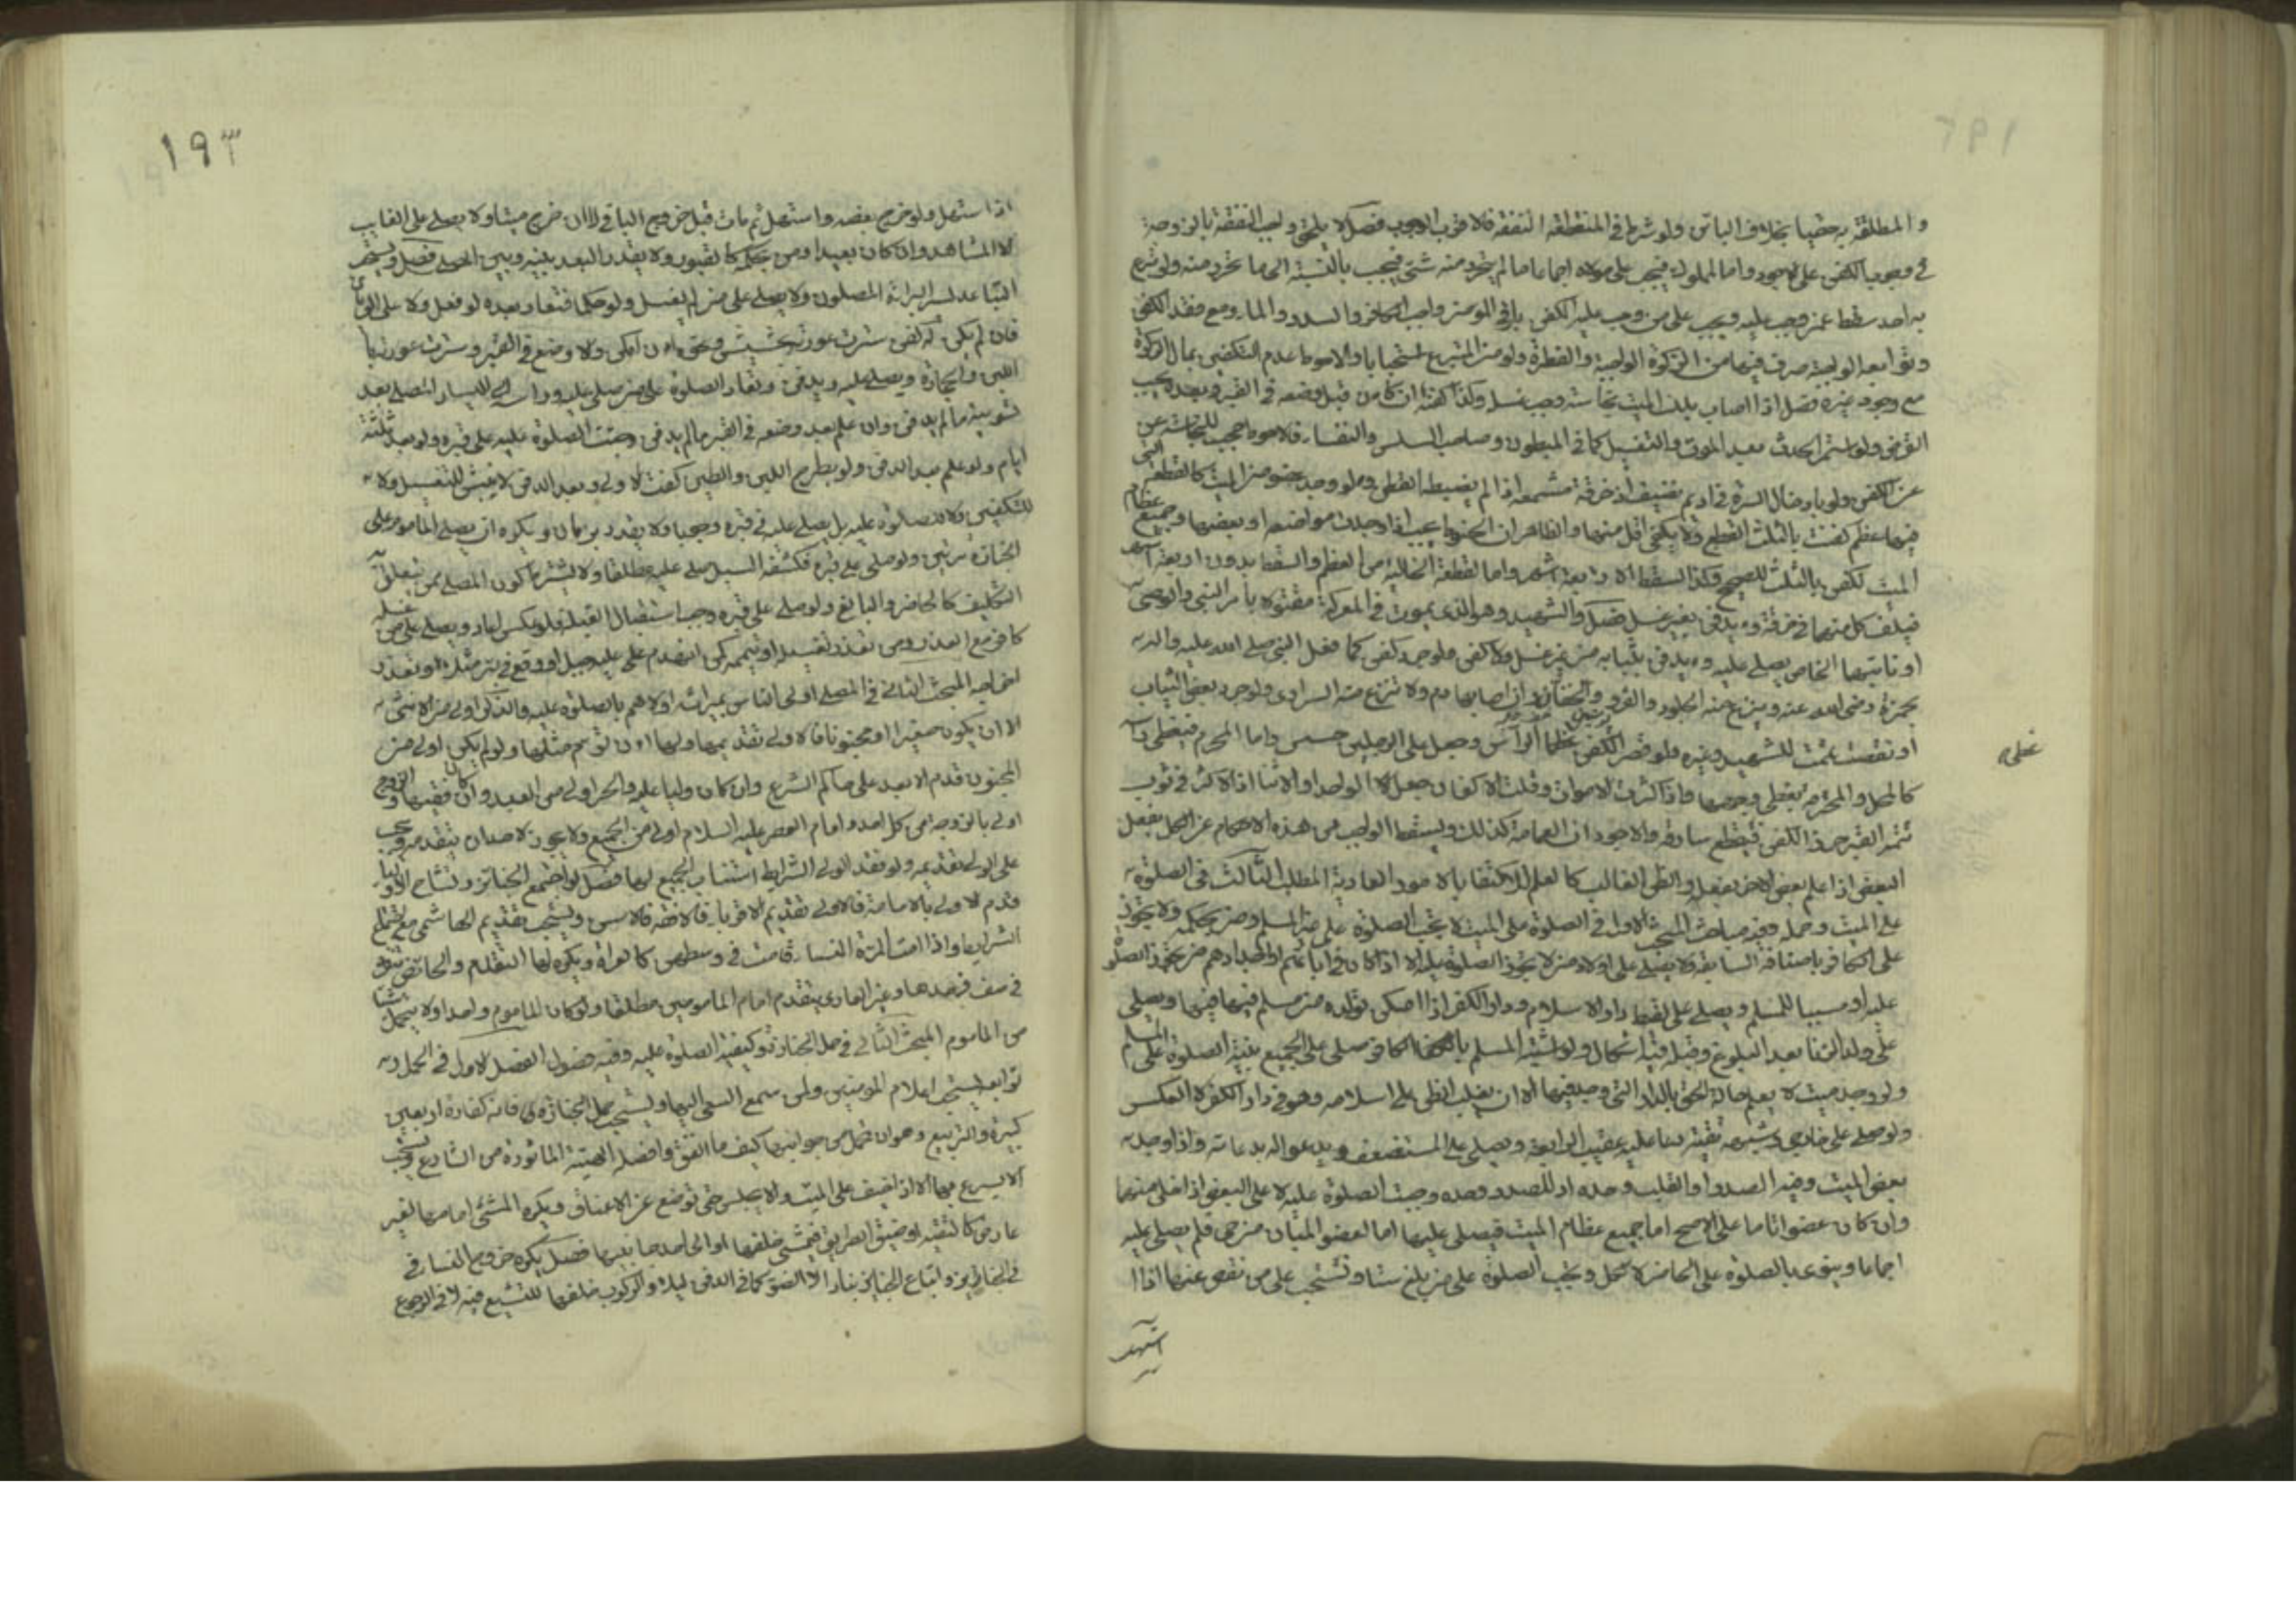 والمطلقة رجعيا بخلاف الباين ولو شرط في المنقطعة النفقة فالاقرب الوجوب فصل لا يلحق واجب النفقة بالزوجة
في وجوب الكفن على الاجود واما المملوك فيجب على مولاه اجماعا ما لم يتحرر منه شيء فيجب بالنسبة الى ما تحرر منه ولو تبرع
به احد سقط عمن وجب عليه ويجب على من وجب عليه الكفن باقي المؤن من واجب الكافور والسدر والماء ومع فقد الكفن
وتوابعه الواجبة صرف فيها من الزكوة الواجبة والفطرة ولو من المتبرع استحبابا والاحوط عدم التكفين بمال الزكوة
مع وجود غيره فصل اذا اصاب بدن الميت نجاسة وجب غسل وكذا كفنه ان كان قبل وضعه في القبر وبعده يجب
القرض ولو استمر الحدث بعد الموت والتغسيل كما في المبطون وصاحب السلس والنفساء فالاحوط حجب النجاسة عن
عن الكفن ولو بادخال السرة في اديم نظيف او خرقة مشمعة اذا لم يضبطه القطن ولو وجد عضو من الميت كالقطعة التي
فيها عظم كفنت بالثلث القطع ولا يكفي اقل منها والظاهر ان الحنوط يجب اذا وجدت مواضعه او بعضها وجميع عظام
الميت تكفن بالثلث للصحيح وكذا السقط لاربعة اشهر واما القطعة الخالية من العظم والسقط بدون اربعة اشهر
فيلف كل منهما في خرقة ويدفن بغير غسل فصل والشهيد وهو الذي يموت في المعركة مقتولا بامر النبي والوصي
او نائبهما الخاص يصلى عليه ويدفن بثيابه من غير غسل ولا كفن ولو جرد كفن كما فعل النبي صلى الله عليه واله
بحمزة رضى الله عنه وينزع عنه الجلود والفرو والخفان وان اصابها دم ولا تنزع منه السراويل ولو جرد بعض الثياب
او نقصت تممت للشهيد وغيره ولو قصر الكفن غطى الراس وجعل على الرجلين حشيش واما المحرم فيغطى راسه
كالمحل والمحرمة يغطى وجهها واذا كثرت الاموات وقلت الاكفان جعل الواحد او الاثنان او الاكثر في ثوب
البعض اذا علم بعض الاخر يفعل والظن الغالب كالعلم للاكتفاء بالامور العادية المطلب الثالث في الصلوة
على الميت وحمله وفيه مباحث المبحث الاول في الصلوة على الميت لا تجب الصلوة على غير المسلم ومن بحكمه ولا يجوز
على الكافر باصنافه السابقة ولا يصلى على اولاد من لا يجوز الصلوة عليه الا اذا كان في ابائهم او اجدادهم من تجوز الصلوة
عليه او مسبيا للمسلم ويصلى على لقيط دار الاسلام ودار الكفر اذا امكن تولده من مسلم فيها ويصلى
على ولد الزنا بعد البلوغ وقبل فيه اشكال ولو اشتبه المسلم بالكافر صلى على الجميع بنية الصلوة على المسلم
ولو وجد ميت لا يعلم حاله الحق بالدار التي وجد فيها الا ان يغلب الظن على اسلامه وهو في دار الكفر او العكس
ولو صلى على خارجي وشبهه تقية دعا عليه عقيب الرابعة ويصلى على المستضعف ويدعو له بدعائه واذا وجد
بعض الميت وفيه الصدر او القلب وحده او الصدر وحده وجبت الصلوة عليه لا على البعض اذا خلى منهما
وان كان عضوا تاما على الاصح اما جميع عظام الميت فيصلى عليها اما العضو المبان من حي فلا يصلى عليه
اجماعا وينوى بالصلوة على الحاضر لا كمل وتجب الصلوة على من بلغ ستا وتستحب على من نقص عنها اذا
استهل
١٩٣
اذا استهل ولو خرج بعضه واستهل ثم مات قبل خروج الباقي لا ان خرج ميتا ولا يصلى على الغايب
لا المشاهد وان كان بعيدا ومن بحكمه كالمقبور ولا يقدر البعد بينه وبين المصلى فصل ويشترط
فان لم يكن له كفن سترت عورته بحشيش ونحوه ان امكن والا وضع في القبر وسترت عورته
اللبن والحجارة ويصلى عليه ويدفن وتعاد الصلوة على من صلى عليه وراسه الى اليسار المصلى بعد
تسوية ما لم يدفن وان علم بعد وضعه في القبر ما لم يدفن وجبت الصلوة عليه على قبره ولو بعد ثلثة
ايام ولو علم بعد الدفن ولو بطرح اللبن والطين كفت الاولى وبعد الدفن لا ينبش للتغسيل ولا
للتكفين ولا للصلوة عليه بل يصلى عليه في قبره وجوبا ولا يقدر بزمان ويكره ان يصلى الماموم على
الجنازة مرتين ولو صلى على قبره فكشفه السيل صلى عليه مطلقا ولا يشترط كون المصلى ممن تعلق به
التكليف كالحاضر والبالغ ولو صلى على قبره وجب استقبال القبلة فلو عكس اعاد ويصلى على من غسله
كافر مع العذر ومن تعذر تغسيله او تيممه كمن انهدم عليه جبل او وقع في بئر مثلا وتعذر
اخراجه المبحث الثاني في المصلى اولى الناس بميراثه اولاهم بالصلوة عليه والذكر اولى من الانثى
الا ان يكون صغيرا او مجنونا فالاولى تقديمها ولو لم يكن اولى من
المجنون قدم الابعد على حاكم الشرع وان كان وليا عليه والحر اولى من العبد وان كان فقيها والزوج
اولى بالزوجة من كل احد وامام العصر عليه السلام اولى من الجميع ولا يجوز لاحد ان يتقدمه ويجب
على الولي تقديمه ولو فقد الولي الشرايط استناب الجميع لها فصل لو اجتمع الجنائز وتشاح الاولياء
قدم الاولى بالامامة فالاولى تقديم الاقرب فالافقه فالاسن ويستحب تقديم الهاشمي مع
الشرايط واذا امت المرئة النساء قامت في وسطهن كالعراة ويكره لها التقدم والحائض تنفرد
في صف وحدها وغير العاري يتقدم امام المامومين مطلقا ولو كان الماموم واحدا ولا يتحمل شيئا
من الماموم المبحث الثالث في حمل الجنازة وكيفية الصلوة عليه وفيه فصول الفصل الاول في الحمل و
توابعه يستحب اعلام المؤمنين ولمن سمع السعي اليها ويستحب حمل الجنازة فانه كفارة اربعين
كبيرة والتربيع وهو ان تحمل من جوانبها كيف ما اتفق وافضله الهيئة الماثورة من الشارع ويستحب
الا يسرع بها الا اذا خيف على الميت ولا يجلس حتى توضع عن الاعناق ويكره المشي امامها لغير
عارض كالتقية او ضيق الطريق فيمشي خلفها او الى احد جانبيها فصل يكره خروج النساء في
في الجنائز واتباع الجنائز بنار الا الضوء كما في الدفن ليلا والركوب خلفها للتشييع فيه لا في الرجوع